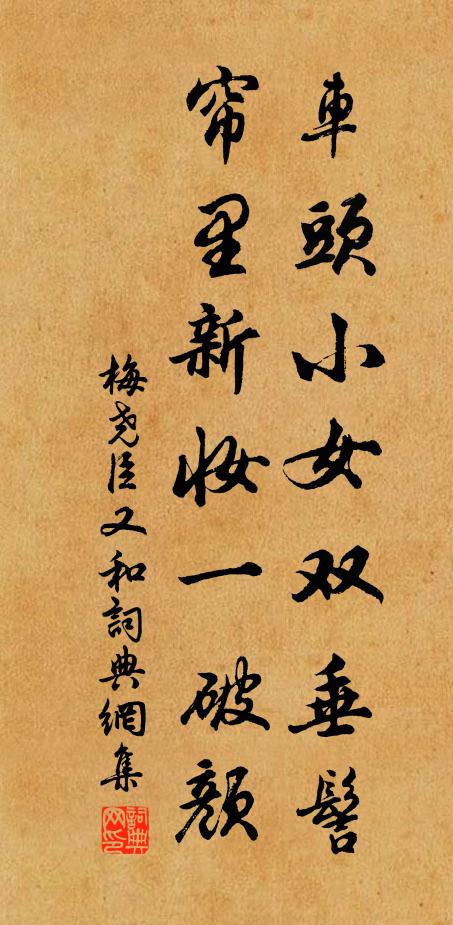 車頭小女双垂髻
帘里新妝一破顏
梅尧臣又和詞典網集
詞典网印